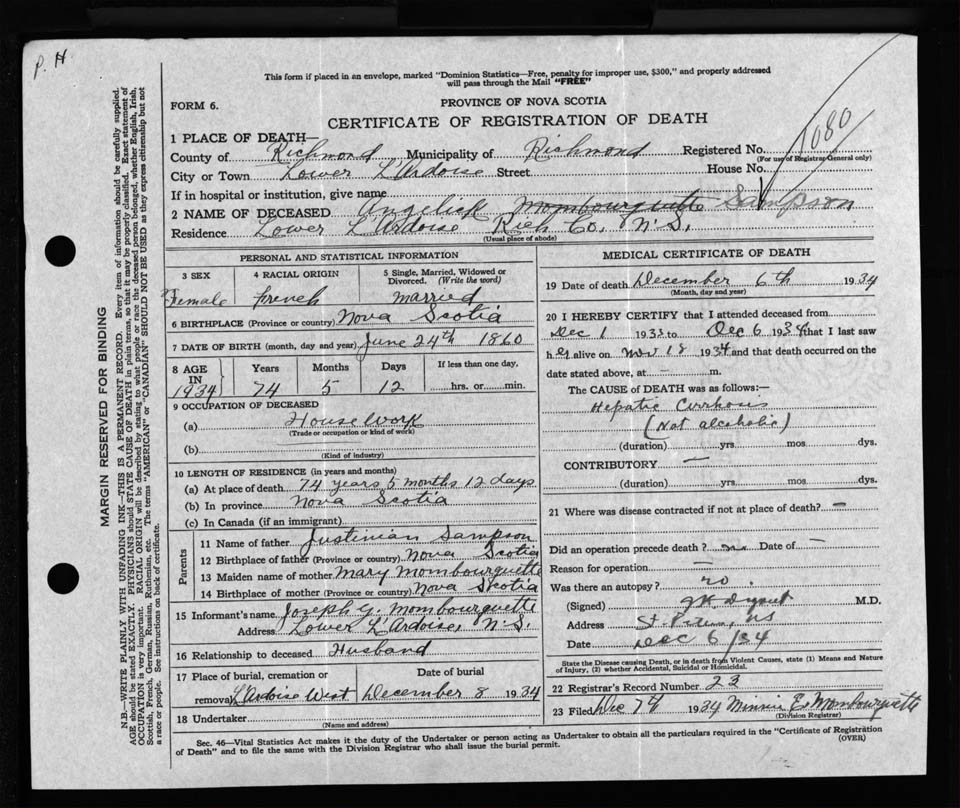 P. H
This form if placed in an envelope, marked "Dominion Statistics—Free, penalty for improper use, $300," and properly addressed
will pass through the Mail "FREE"
FORM 6.
PROVINCE OF NOVA SCOTIA
CERTIFICATE OF REGISTRATION OF DEATH
1080
1 PLACE OF DEATH—
County of Richmond, Municipality of Richmond Registered No.
(For use of Registrar General only)
City or Town Lower L'Ardoise Street House No.
If in hospital or institution, give name
2 NAME OF DECEASED Angelick Mombourquette Sampson
Residence Lower L'Ardoise Rich Co. N.S.
(Usual place of abode)
PERSONAL AND STATISTICAL INFORMATION
3 SEX 4 RACIAL ORIGIN 5 Single, Married, Widowed or Divorced. (Write the word)
Female French Married
6 BIRTHPLACE (Province or country) Nova Scotia
7 DATE OF BIRTH (month, day and year) June 24th 1860
8 AGE IN 1934 Years Months Days If less than one day.
74 5 12 hrs. or min.
9 OCCUPATION OF DECEASED
(a) Housework
(Trade or occupation or kind of work)
(b)
(Kind of industry)
10 LENGTH OF RESIDENCE (in years and months)
(a) At place of death 74 years 5 months 12 days
(b) In province Nova Scotia
(c) In Canada (if an immigrant)
Parents
11 Name of father Justinian Sampson
12 Birthplace of father (Province or country) Nova Scotia
13 Maiden name of mother Mary Mombourquette
14 Birthplace of mother (Province or country) Nova Scotia
15 Informant's name Joseph G. Mombourquette
Address Lower L'Ardoise, N.S.
16 Relationship to deceased Husband
17 Place of burial, cremation or removal Date of burial
L'Ardoise West December 8 1934
18 Undertaker
(Name and address)
MEDICAL CERTIFICATE OF DEATH
19 Date of death December 6th 1934
(Month, day and year)
20 I HEREBY CERTIFY that I attended deceased from
Dec 1 1933 to Dec 6 1934 that I last saw
her alive on Nov 18 1934 and that death occurred on the
date stated above, at — m.
The CAUSE of DEATH was as follows:—
Hepatic Cirrhosis
(Not alcoholic)
(duration) yrs. mos. dys.
CONTRIBUTORY —
(duration) yrs. mos. dys.
21 Where was disease contracted if not at place of death? —
Did an operation precede death? no Date of —
Reason for operation —
Was there an autopsy? no.
(Signed) M.D.
Address St. Peters, NS
Date Dec 6/34
State the Disease causing Death, or in death from Violent Causes, state (1) Means and Nature
of Injury, (2) whether Accidental, Suicidal or Homicidal.
22 Registrar's Record Number 23
23 Filed Dec 7th 1934 Minnie E. Mombourquette
(Division Registrar)
Sec. 46—Vital Statistics Act makes it the duty of the Undertaker or person acting as Undertaker to obtain all the particulars required in the "Certificate of Registration
of Death" and to file the same with the Division Registrar who shall issue the burial permit. (OVER)
MARGIN RESERVED FOR BINDING
N.B.—WRITE PLAINLY WITH UNFADING INK—THIS IS A PERMANENT RECORD. Every item of information should be carefully supplied.
AGE should be stated EXACTLY. PHYSICIANS should STATE CAUSE OF DEATH in plain terms, so that it may be properly classified. Exact statement of
OCCUPATION is very important. RACIAL ORIGIN will be described by stating to what people or race the deceased person belonged, whether English, Irish,
Scottish, French, German, Russian, Ruthenian, etc. The terms "AMERICAN" or "CANADIAN" SHOULD NOT BE USED as they express citizenship but not
a race or people. See instructions on back of certificate.